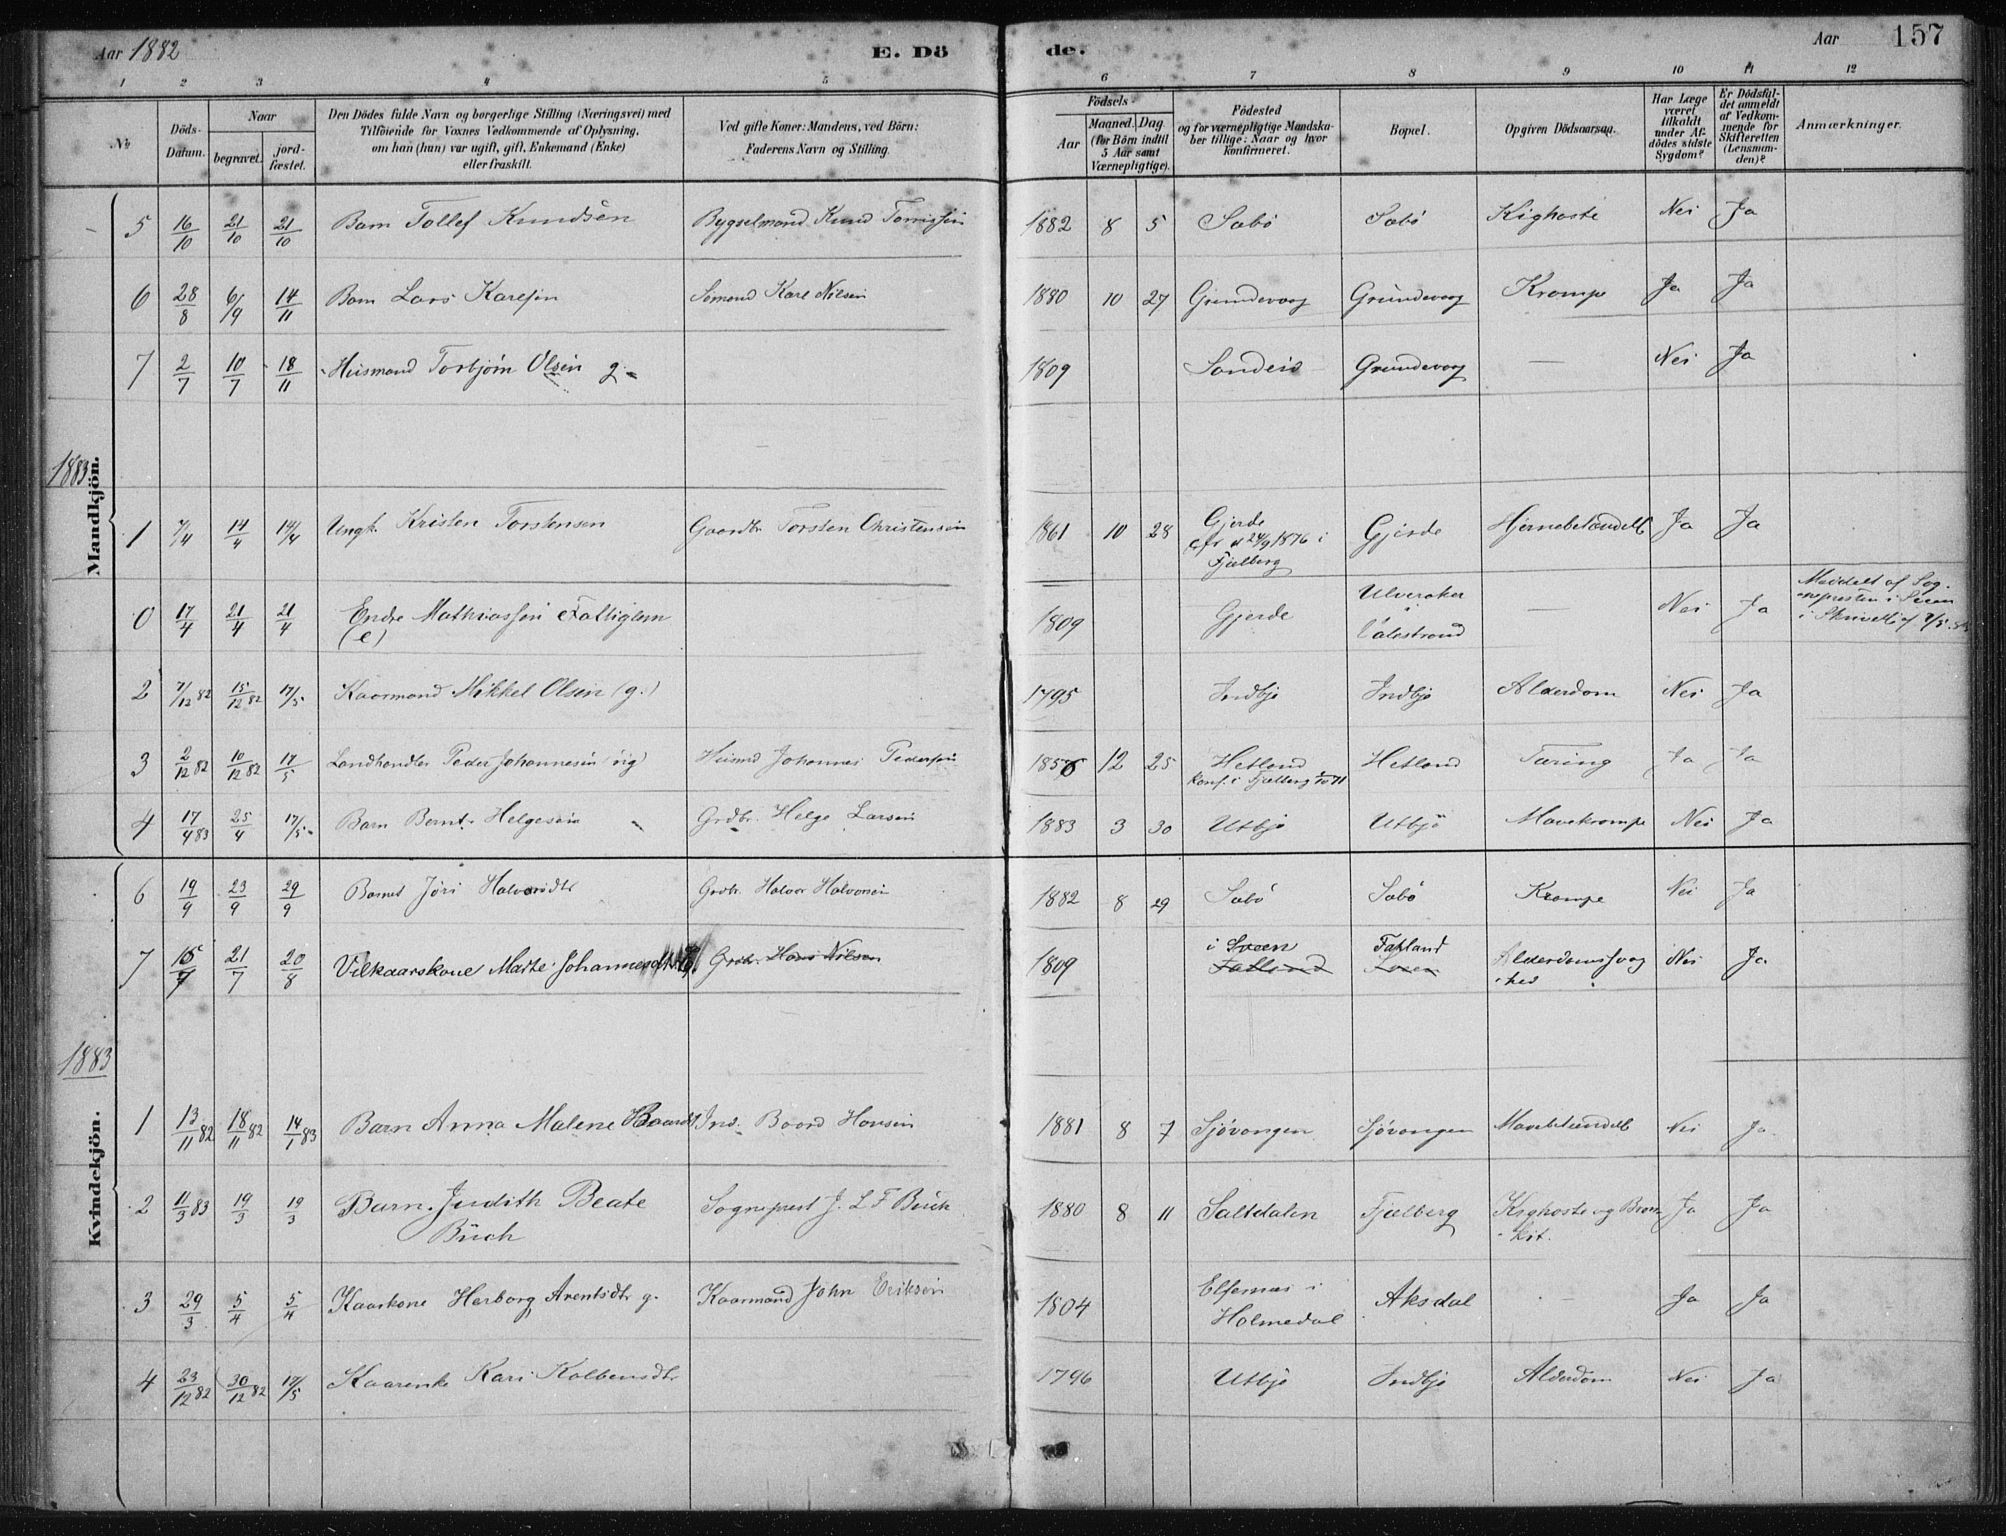 Aar 1882
E. Dö
de.
Aar
157
1 2 3 4 5 6 7 8 9 10 11 12
№
Döds-
Datum.
Naar
begravet.
jord-
fæstet.
Den Dödes fulde Navn og borgerlige Stilling (Næringsvei) med
Tilföiende for Voxnes Vedkommende af Oplysning,
om han (hun) var ugift, gift, Enkemand (Enke)
eller fraskilt.
Ved gifte Koner: Mandens, ved Börn:
Faderens Navn og Stilling.
Födsels-
Aar
Maaned. Dag
(for Börn indtil
5 Aar samt
Værnepligtige).
Födested
og for værnepligtige Mandska-
ber tillige: Naar og hvor
konfirmeret.
Bopæl.
Opgiven Dödsaarsag.
Har Læge
været
tilkaldt
under Af-
dödes sidste
Sygdom?
Er Dödsfal-
det anmeldt
af Vedkom-
mende for
Skifteretten
(Lensman-
den)?
Anmærkninger.
Mandkjön.
5 16/10 21/10 21/10 Barn Tollef Knudsen Bygselmand Knud 1882 8 5 Sæbö Sæbö Kighoste Nei Ja
6 28/8 6/9 14/11 Barn Lars Karlsen Sömand Karl Nilsen 1880 10 27 Grundevaag Grundevaag Krampe Ja Ja
7 2/7 10/7 18/11 Husmand Torbjörn Olsen g. 1809 Sandeid Grundevaag — Nei Ja
1883
1 7/4 14/4 14/4 Ungk. Kristen Torstensen Gaardbr. Torsten Christensen 1861 10 28 Gjerde
24/9 1876 i
Fjælberg Gjerde Hjernebetændels Ja Ja
0 17/4 21/4 21/4 Endre Mathiassen Fattiglem
(e) 1809 Gjerde Ulveraker
i
Valestrand — Nei Ja Meddelt af Sog-
nepresten i Sveen
i Skrivelse af
2 7/12 82 15/12 82 17/5 Kaarmand Mikkel Olsen (g.) 1795 Indbjo Indbjo Alderdom Nei Ja
3 2/12 82 10/12 82 17/5 Landhandler Peder Johannesen (ug) Husmd Johannes Pedersen 1856 12 25 Hetland
Konf. i Fjælberg Hetland Tæring Ja Ja
4 17/4 83 25/4 17/5 Barn Bernt Helgesen Grdbr. Helge Larsen 1883 3 30 Utbjo Utbjö Mavekrampe Nei Ja
Kvindekjön.
6 19/9 23/9 29/9 Barnet Jöri Halvorsdtr Grdbr. Halvor Halvorsen 1882 8 29 Sæbö Sæbö Krampe Nei Ja
7 15/7 21/7 20/8 Vilkaarskone Marte Johannesdtr Grdbr. Hans Nilsen 1809 i Sveen
Fatland Fatland
Sveen Alderdomssvag
hed Nei Ja
1883
1 13/11 82 18/11 82 14/1 83 Barn Anna Malene Baardsd Ind. Baard Hansen 1881 8 7 Sjövangen Sjövangen Mavebetændels Nei Ja
2 11/3 83 19/3 19/3 Barn Judith Beate
Büch Sogneprest J. L. F. Büch 1880 8 11 Saltdalen Fjælberg Kighoste og Bron
kit. Ja Ja
3 29/3 5/4 5/4 Kaarkone Herborg Arentsdtr g. Kaarmand John Eriksen 1804 Elfernæs i
Holmedal Aksdal — Ja Ja
4 23/12 82 30/12 82 17/5 Kaarenke Kari Kolbensdtr 1796 Utbjo Indbjo Alderdom Nei Ja